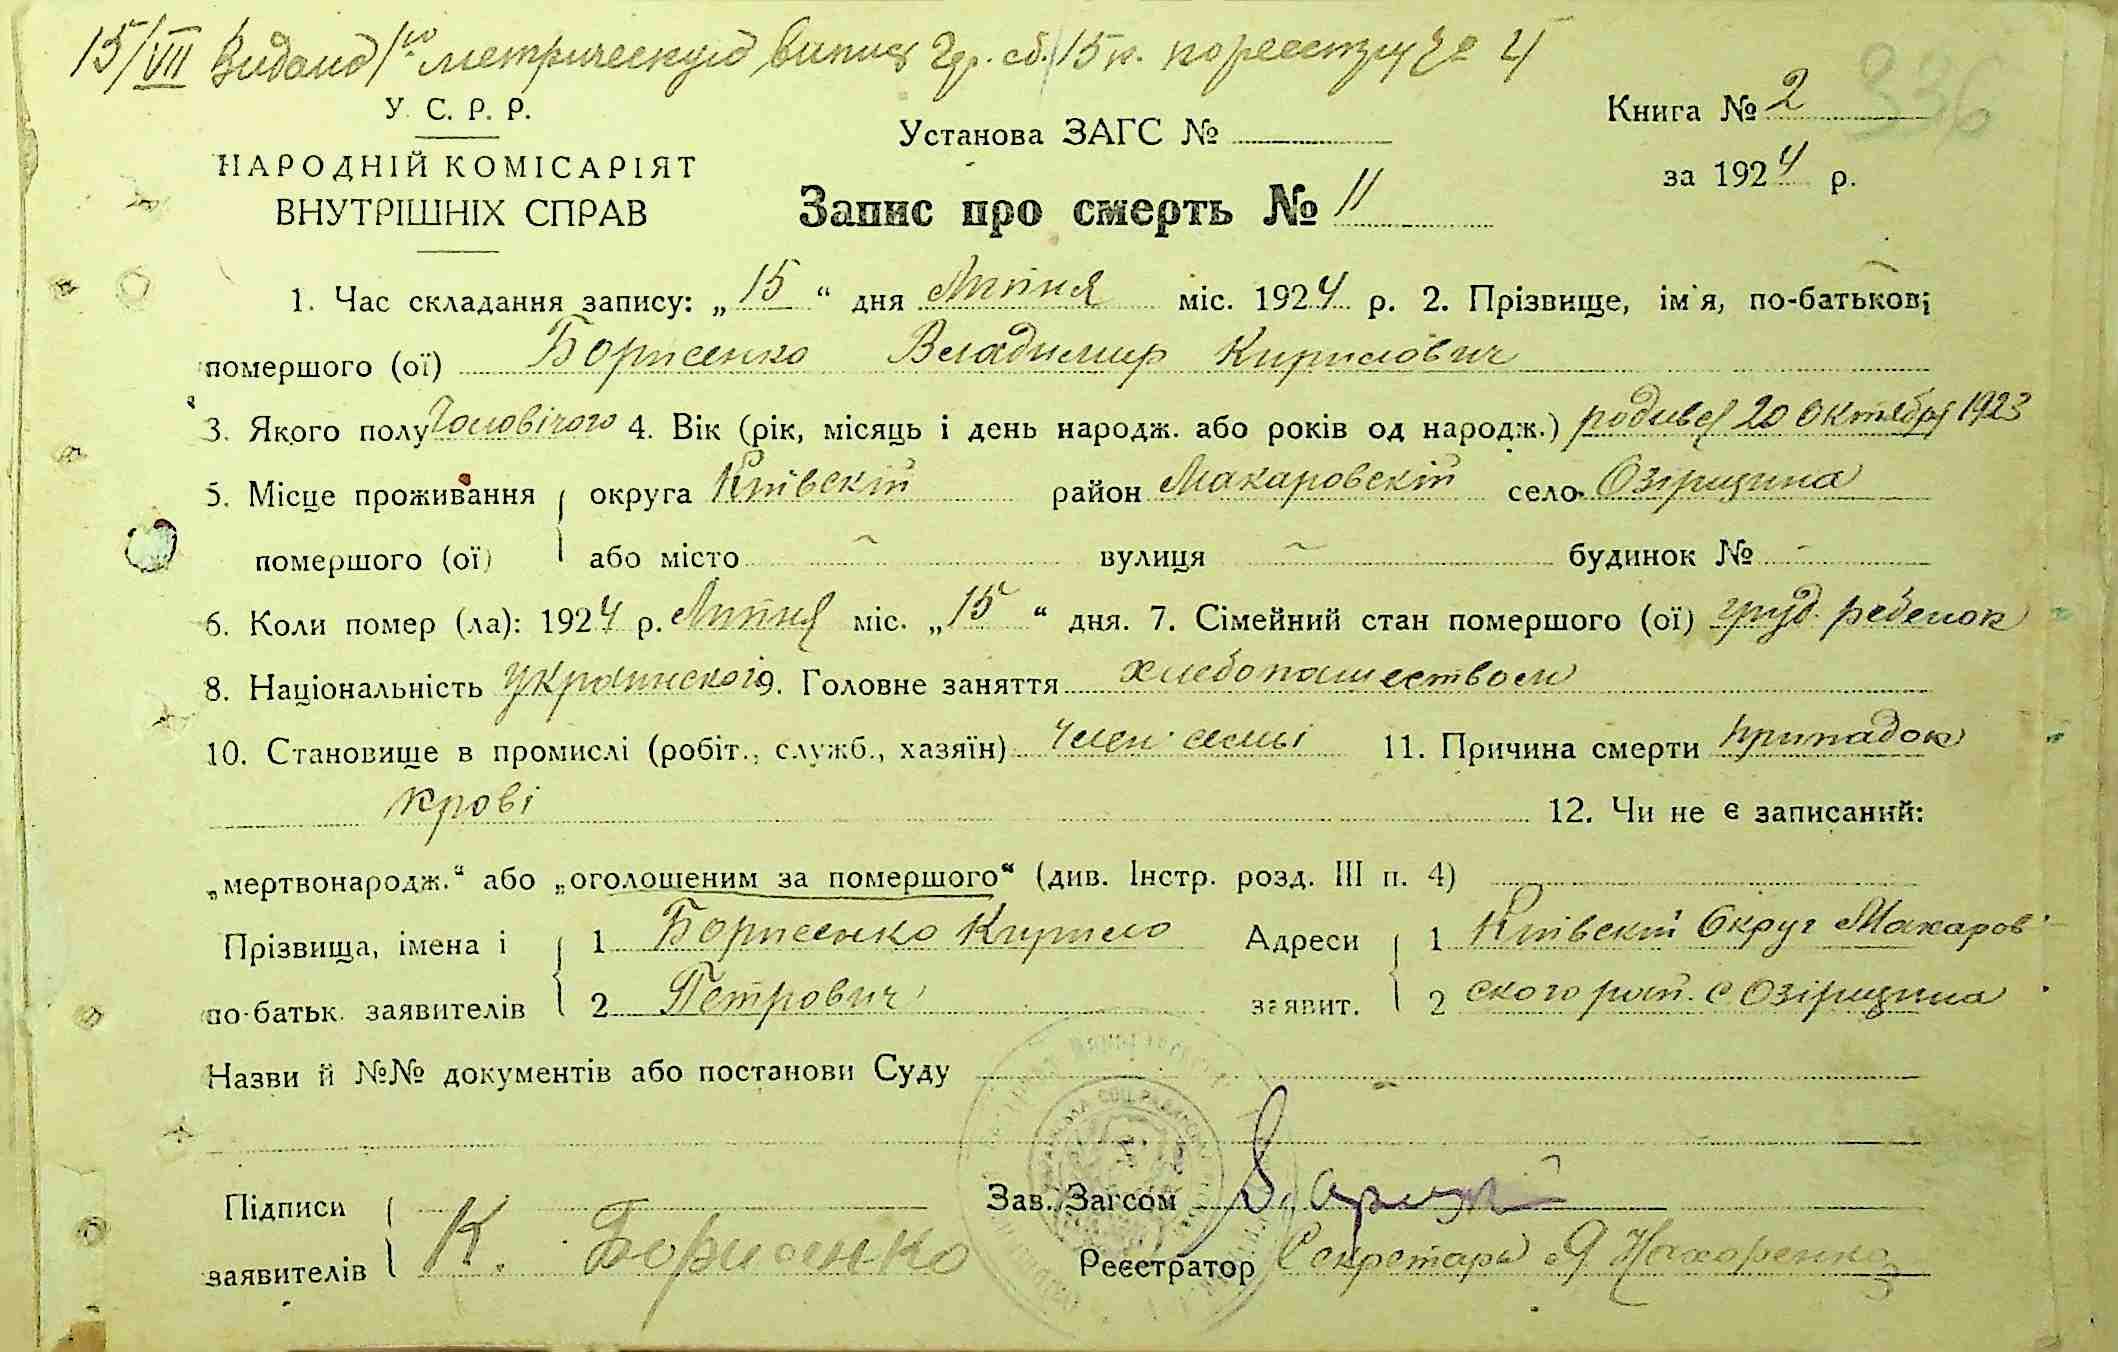 15/VII Видано 1ую метрическую випис гр. сб. 15 к. по реестру № 4
336
У. С. Р. Р.
Книга № 2
Установа ЗАГС №
НАРОДНІЙ КОМІСАРІЯТ
ВНУТРІШНІХ СПРАВ
за 1924 р.
Запис про смерть № 11
1. Час складання запису: „15“ дня Липня міс. 1924 р. 2. Прізвище, ім'я, по-батькові
помершого (ої) Борисенко Владимир Кирилович
3. Якого полу Чоловічого 4. Вік (рік, місяць і день народж. або років од народж.) родився 20 Октября 1923
5. Місце проживання округа Київскій район Макаровскій село Озірщина
помершого (ої) або місто - вулиця - будинок № -
6. Коли помер (ла): 1924 р. Липня міс. „15“ дня. 7. Сімейний стан помершого (ої) груд. ребенок
8. Національність Украинского 9. Головне заняття хлебопашеством
10. Становище в промислі (робіт., служб., хазяїн) член семьі 11. Причина смерти припадок
крові 12. Чи не є записаний:
„мертвонародж.“ або „оголошеним за помершого“ (див. Інстр. розд. III п. 4)
Прізвища, імена і 1 Борисенко Кирило Адреси 1 Київскій Округ Макаров
по-батьк. заявителів 2 Петрович заявит. 2 ского рай. с Озірщина
Назви й №№ документів або постанови Суду
Підписи Зав. Загсом
заявителів К. Борисенко Реєстратор Секретарь Я Назаренко